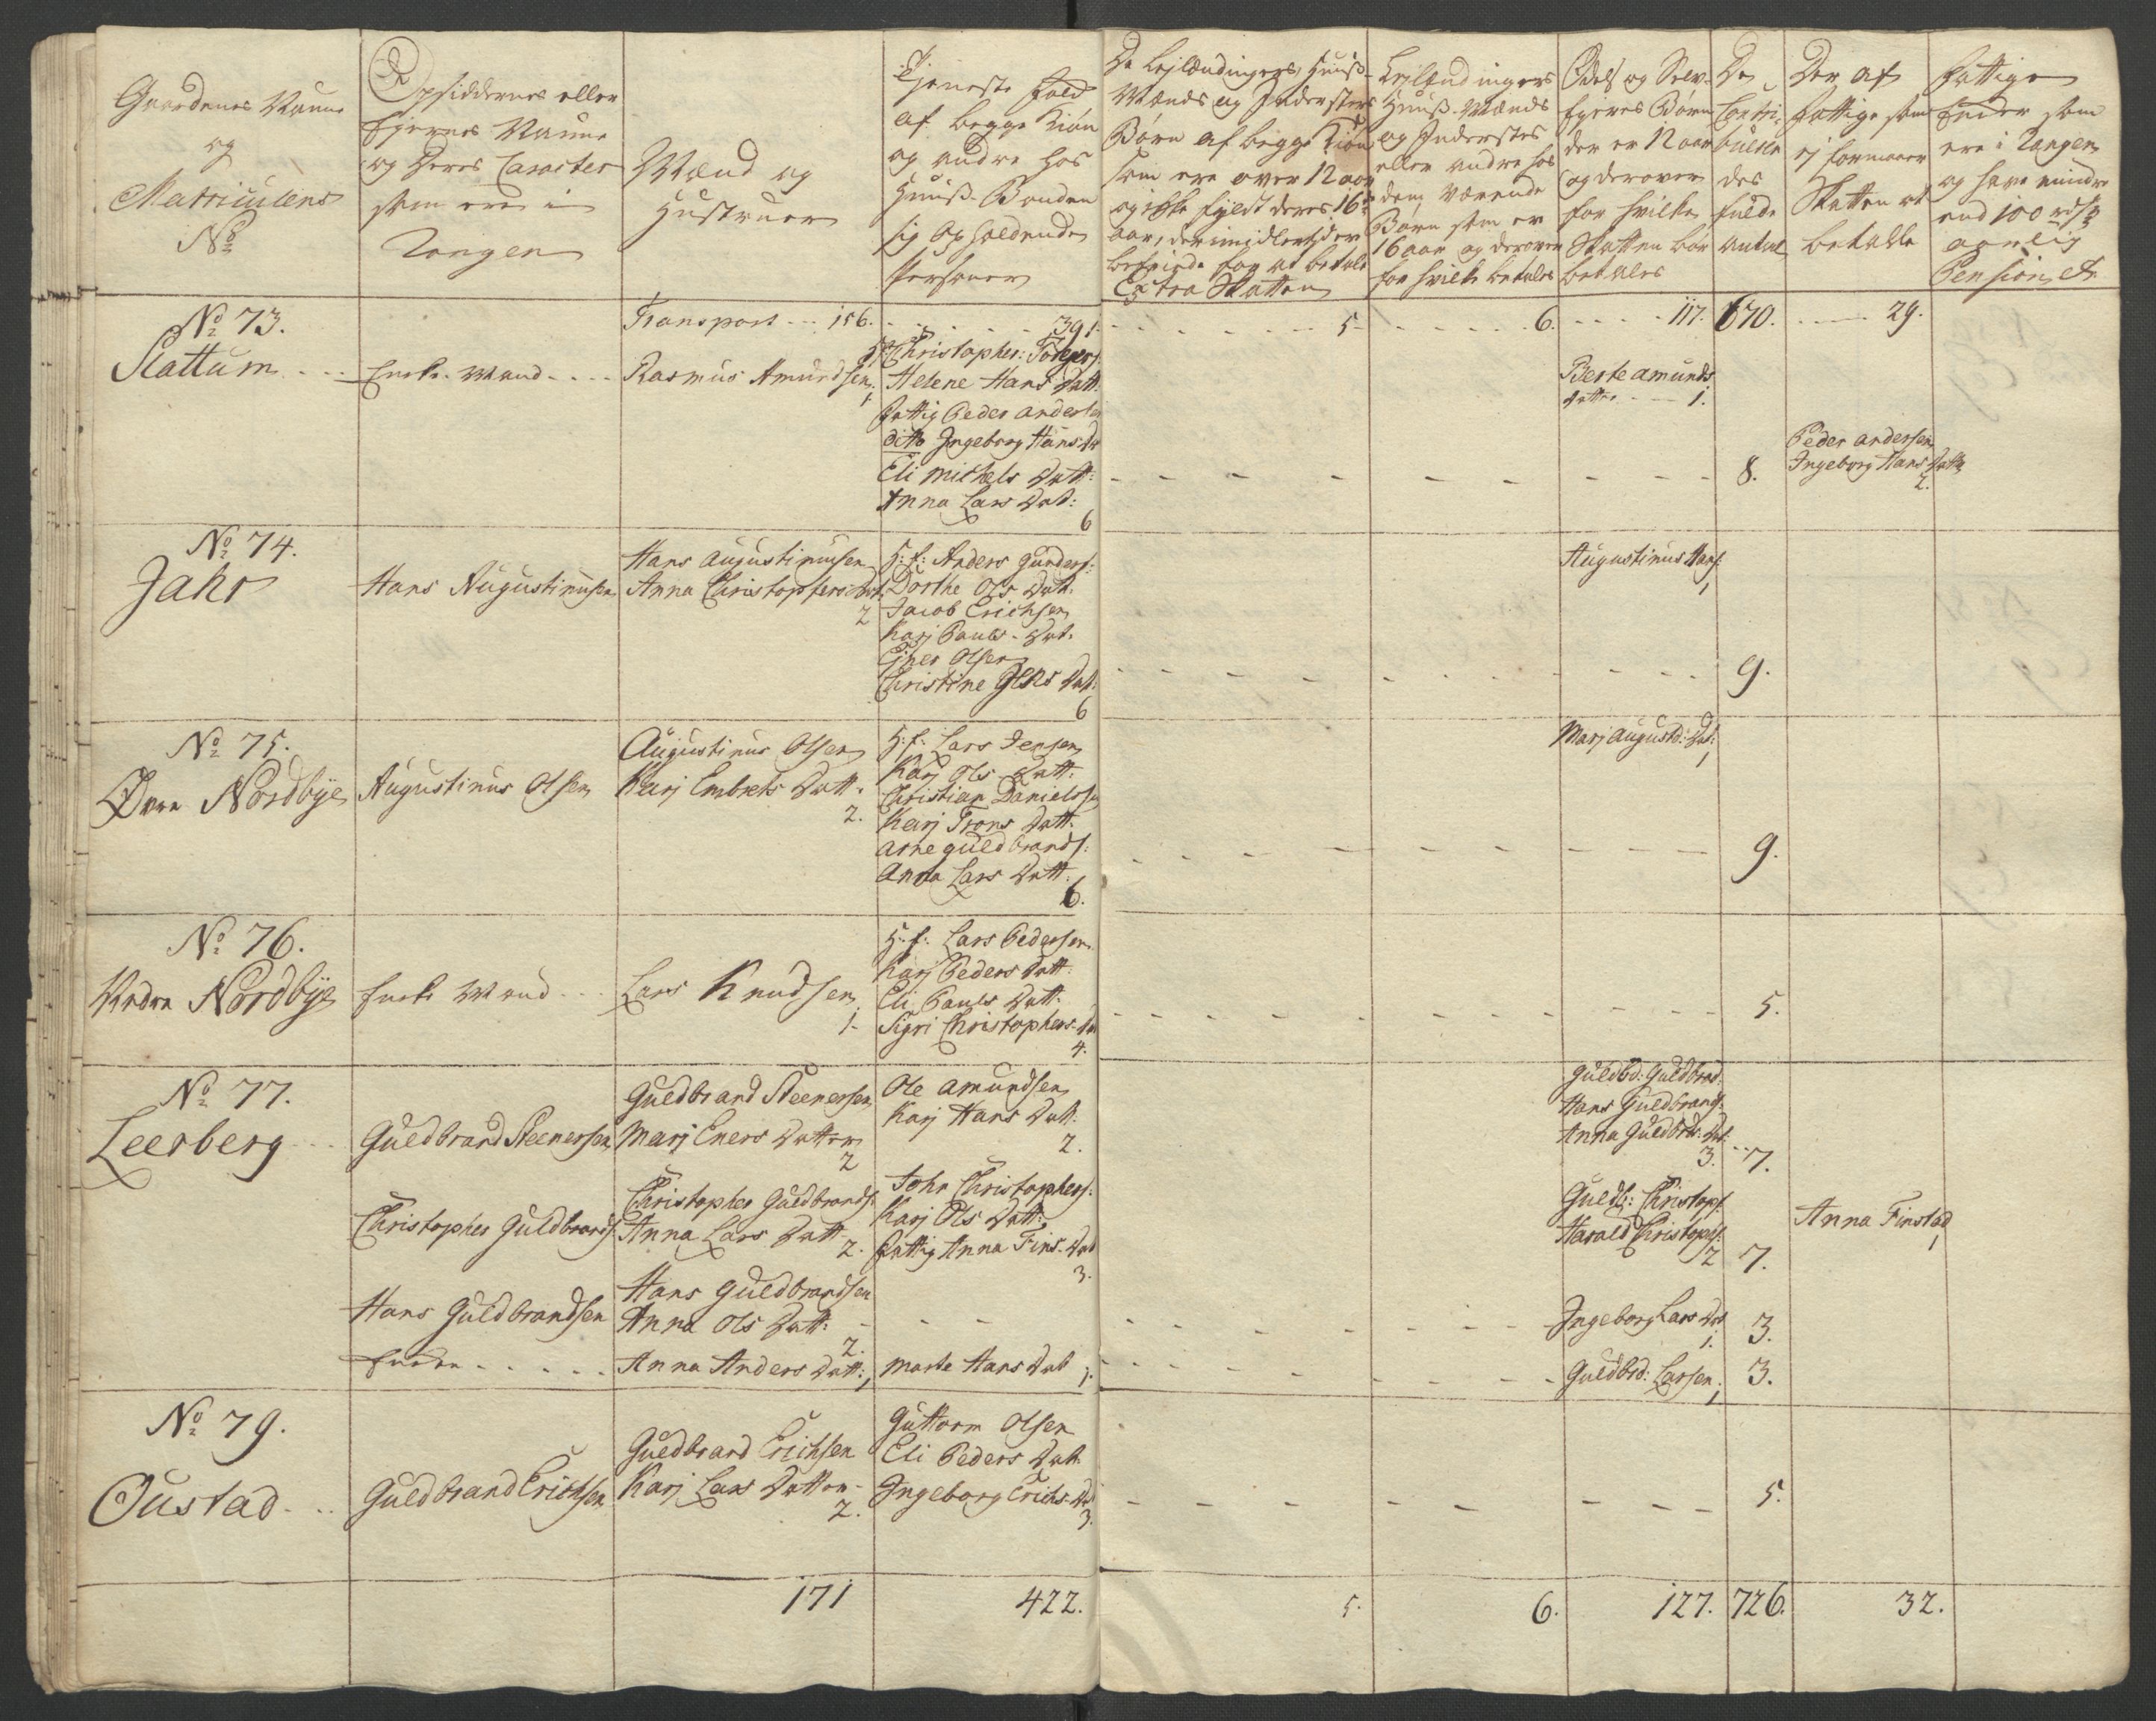 Gaardenes Naune
og
Matriculens
No
Opsiddernes eller
Ejernes Naune
og Deres Caracter
som ere i
Rangen
Mænd og
Hustruer
Tjeneste Folk
af begge Kiøn
og andre hos
Huuß-Bonden
sig opholdende
Personer
De Lejlændingers, Huuß-
Mænds og Inderster
Børn af begge Kiøn
som ere over 12 aar
og ikke fyldt deres 16de
aar, der imidlertid er
befriede for at betale
Extra Skatten
Lejlændingers
Huuß-Mænds
og Inderstes
eller andre hos
dem værende
Børn som er
16 aar og derover
for hvilke betales
Odels og Selv-
Ejeres Børn
der er 12 aar
og derover
for hvilke
Skatten bør
betales
De
Contri-
bueren
des
fulde
Antal
Der af
fattige som
ej formaaer
Skatten at
betalle
fattige
Enker som
ere i Rangen
og have mindre
end 100 rd
aarlig
Pension etc
Transport --- 156. 391. 5. 6. 117. 670. 29.
No 73.
Slattum
Enke-Mand
Rasmus Amundsen
1.
Christopher: Torgers:
Helene Hans Datt:
fattig Peder Andersen
ditto Ingeborg Hans Dr
Eli Michels Datt:
Anna Lars Dat:
6
Berte Amunds
Datter 1.
8.
Peder Andersen
Ingeborg Hans Datt
2.
No 74.
Jahr
Hans Augustinusen
Hans Augustinusen
Anna Christophers Dat
2
H: f: Anders Gunders:
Dorthe Ols Dat:
Jacob Erichsen
Karj Pauls-Dat.
Ejner Olsen
Christine Jens Dat:
6
Augustinus Hans:
1
9.
No 75.
Øvre Nordbye
Augustinus Olsen
Augustinus Olsen
Karj Embrets Datt.
2.
H: f: Lars Jensen
Karj Ols Datt:
Christian Danielssen
Karj Trons Datt:
Arne Guldbrands:
Anna Lars Datt.
6.
Marj August: Dat:
1
9.
No 76.
Nedre Nordbye
Enke Mand
Lars Knudsen
1.
H: f: Lars Pedersen
Karj Peders Datt:
Eli Pauls Datt:
Sigri Christophers-Dat
4.
5.
No 77.
Leerberg
Guldbrand Steenersen
Guldbrand Steenersen
Marj Eners Datter
2
Ole Amundsen
Karj Hans Dat.
2.
Guldbd: Guldbrad:
Hans Guldbrands:
Anna Guldbrds: Dat:
3.
7.
Christopher Guldbrands:
Christopher Guldbrands:
Anna Lars Datt
2.
John Christophers:
Karj Ols Datt:
fattig Anna Fins-Dat
3.
Guldb: Christoph:
Harald Christophs:
2
7.
Anna Finstad
1
Hans Guldbrandsen
Hans Guldbrandsen
Anna Ols Datt:
2.
Ingeborg Lars Dat
1.
3.
Enken
Anna Anders Datt: 1
Marte Hans Dat 1.
Guldbrd: Larsen
1
3.
No 79.
Oustad
Guldbrand Erichsen
Guldbrand Erichsen
Karj Lars Datter
2.
Guttorm Olsen
Eli Peders Dat.
Ingeborg Erichs-Dat
3.
5.
171 422. 5. 6. 127. 726. 32.